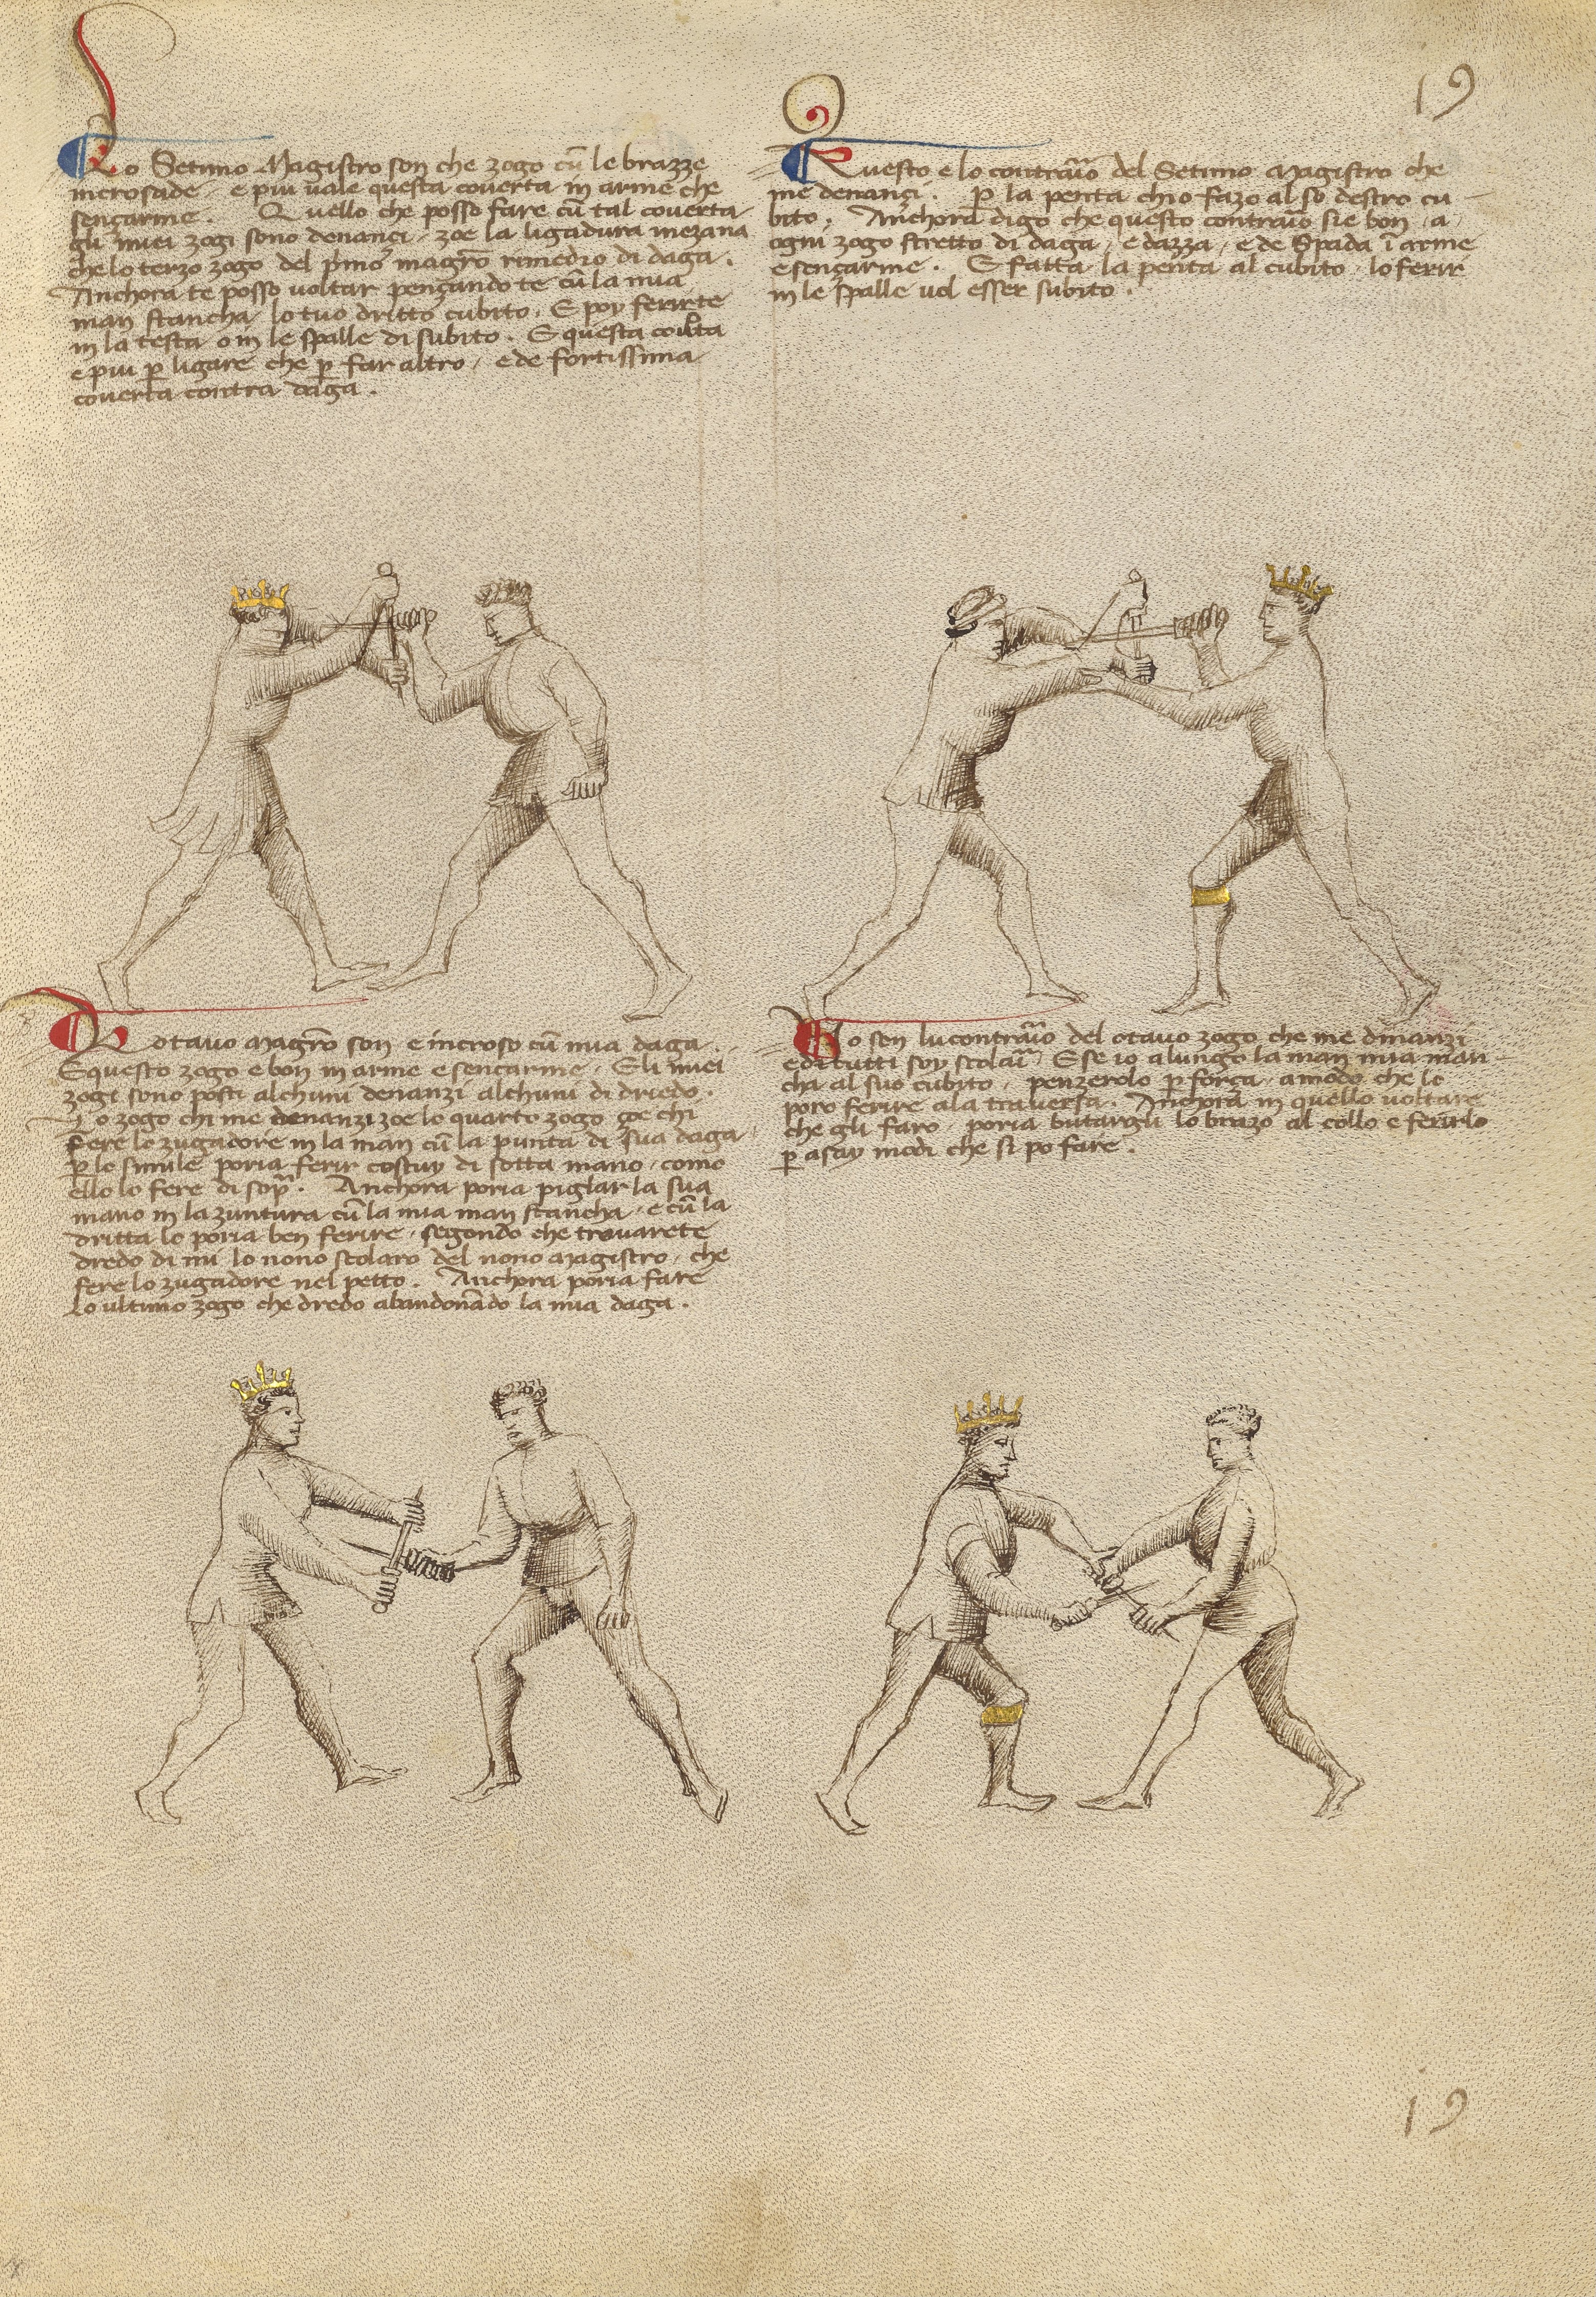 19
Lo Setimo Magistro son che zogo cū le brazze
incrosade / e piu uale questa couerta in arme che
sençarme . Quello che posso fare cū tal couerta
gli miei zogi sono denançi / zoe la ligadura mezana
che lo terzo zogo del p̄mo magr̄o rimedio di daga .
Anchora te posso uoltar pençandote cū la mia
man stancha lo tuo dritto cubito . E poy ferirte
in la testa o in le spalle di subito . E questa cou̅ta
e piu p̱ ligare che p̱ far altro / e de fortissima
couerta contra daga .
Questo e lo contrario del Setimo Magistro che
me denançi . P̱ la penta chio fazo al so destro cu
bito . Anchora digo che questo contrario sie bon / a
ogni zogo stretto di daga / e dazza / e de Spada ī arme
e sençarme . E fatta la penta al cubito / lo ferir
in le spalle uol esser subito .
Lo otauo magr̄o son e incroso cū mia daga .
E questo zogo e bon in arme e sençarme / E li miei
zogi sono posti alchuni denanzi alchuni di driedo .
Lo zogo chi me denanzi zoe lo quarto zogo çoe chi
fere lo zugadore in la man cū la punta di sua daga /
p̱ lo simile poria ferir costuy di sotta mano / como
ello lo fere di sop̄ . Anchora poria piglar la sua
mano in la zuntura cū la mia man stancha / e cū la
dritta lo poria ben ferire / segondo che trouarete
dredo di mi lo nono scolaro del nono magistro / che
fere lo zugadore nel petto . Anchora poria fare
lo ultimo zogo che dredo abandonādo la mia daga .
Io son lu contrario del otauo zogo che me dinanzi
e di tutti soy scolari . E se io alungo la man mia man
cha al suo cubito / penzerolo p̱ força / a modo che lo
poro ferire a la trauersa . Anchora in quello uoltare
che gli faro poria butargli lo brazo al collo e ferirlo
p̱ asay modi che si po fare .
19